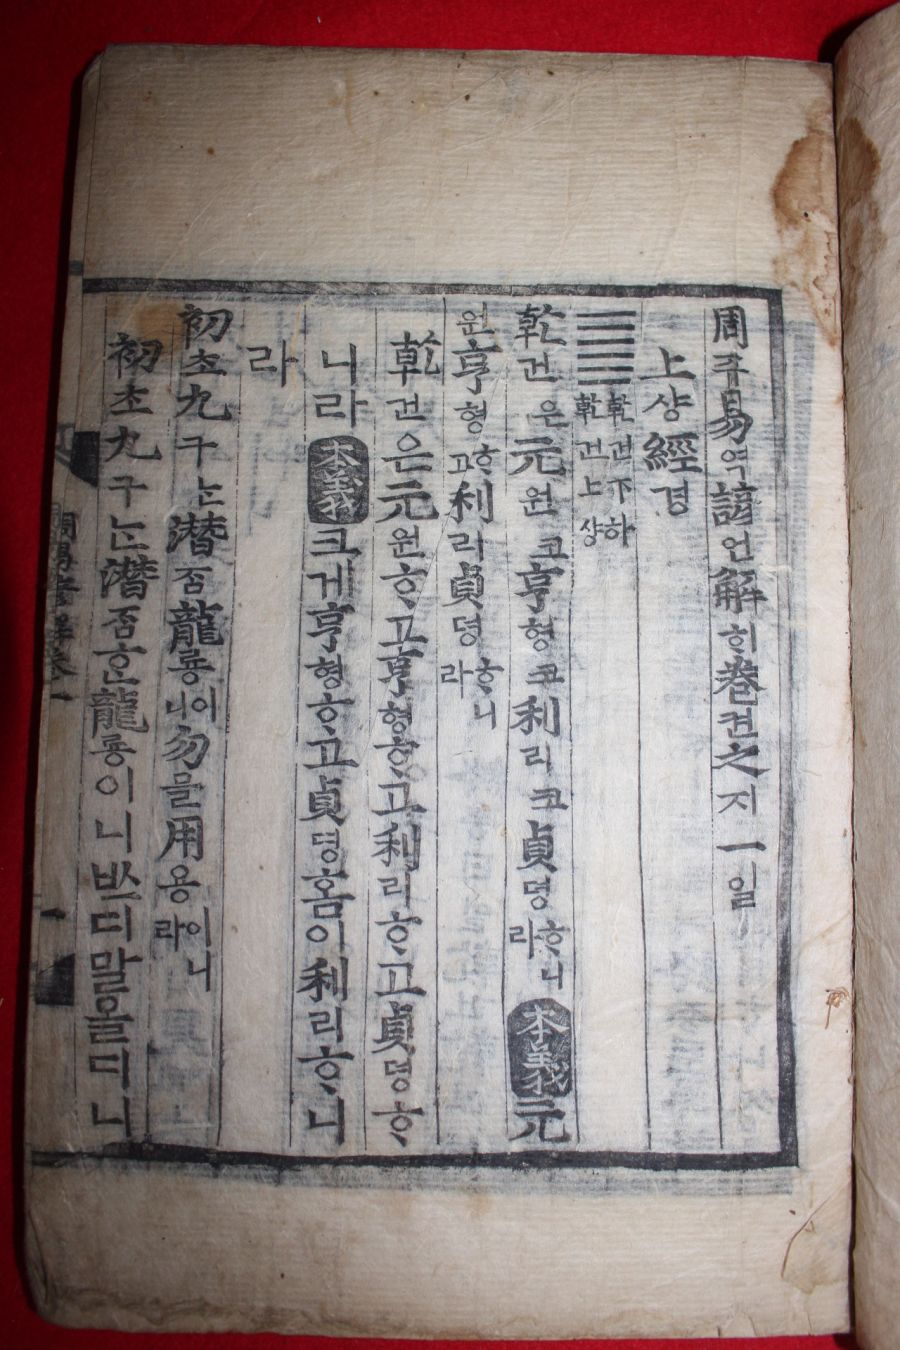 周쥬易역諺언解ᄒᆡ卷권之지一일
上샹經경
䷀ 乾건下하
乾건上샹
乾건은元원코亨형코利리코貞뎡ᄒᆞ니라本義元
원亨형ᄒᆞ고利리貞뎡ᄒᆞ니라
乾건은元원ᄒᆞ고亨형ᄒᆞ고利리ᄒᆞ고貞뎡ᄒᆞ
니라本義크게亨형ᄒᆞ고貞뎡홈이利리ᄒᆞ니
라
初초九구ᄂᆞᆫ潛ᄌᆞᆷ龍룡이니勿믈用용이니라
初초九구ᄂᆞᆫ潛ᄌᆞᆷᄒᆞᆫ龍룡이니ᄡᅳ디말올디니